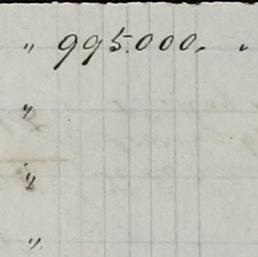 " 995.000. "
"
"
"